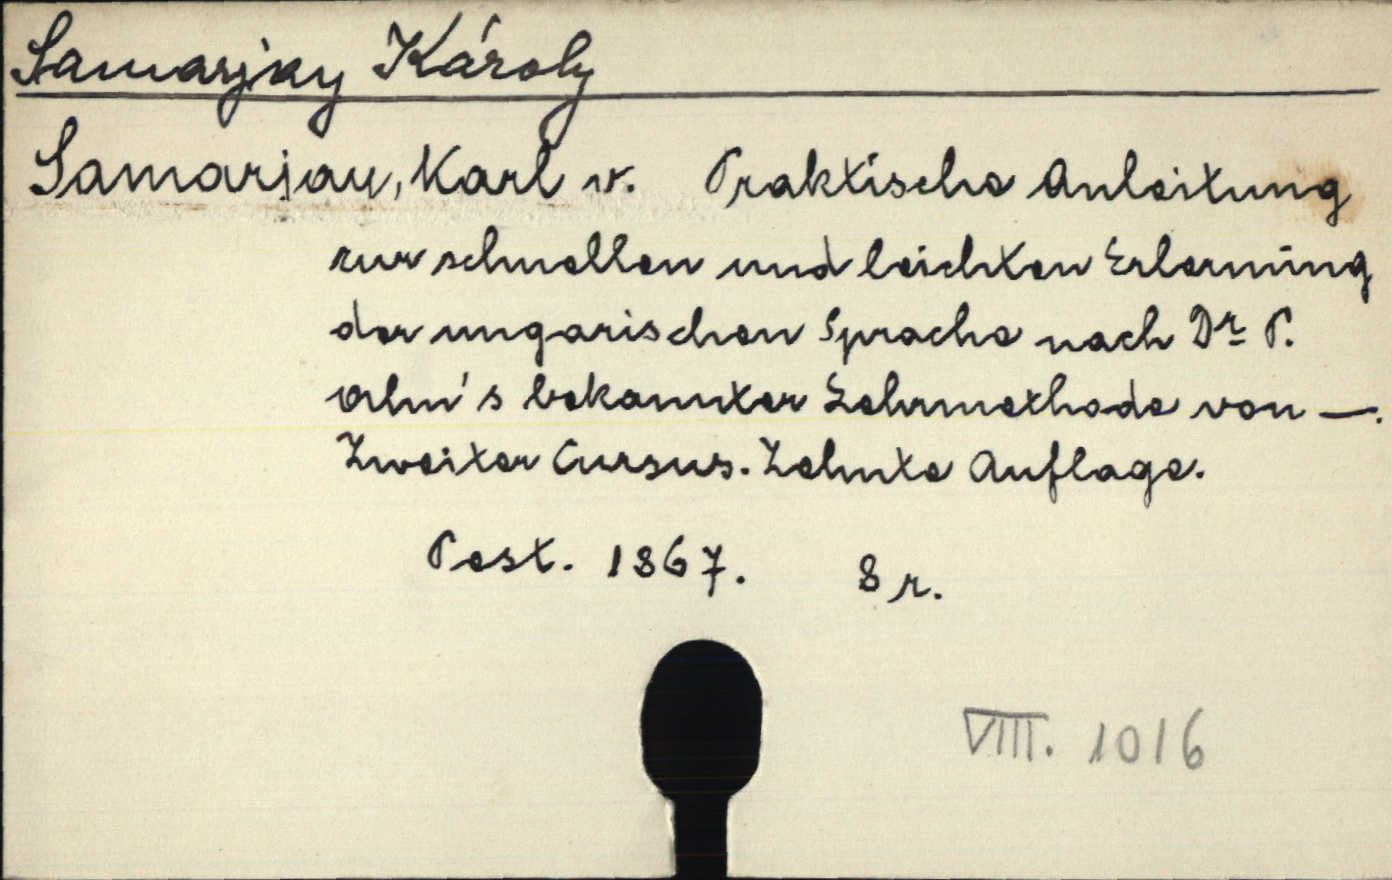 Samarjay Károly
Samarjay, Karl v. Praktische Anleitung
zur schnellen und leichten Erlernung
der ungarischen Sprache nach Dr P.
Ahn's bekannter Lehrmethode von —.
Zweiter Cursus. Zehnte Auflage.
Pest. 1867. 8 r.
VIII. 1016